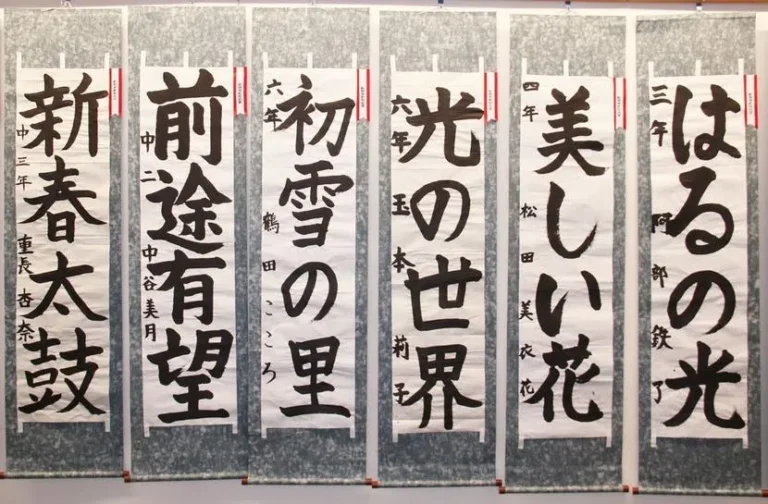 はるの光
三年 阿部鉄了
美しい花
四年 松田美衣花
光の世界
六年 玉本莉子
初雪の里
六年 鶴田こころ
前途有望
中二 中谷美月
新春太鼓
中三年 重長杏奈